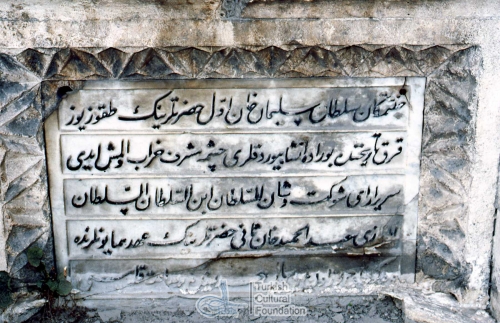 جنتمكان سلطان سليمان خان اول حضرتلرينك طقوز يوز
قرق تاريخنده بوراده انشا بيوردقلرى چشمه مشرف خراب اولمش ايدى
سريرآراى شوكت وشان السلطان ابن السلطان السلطان
الغازى عبد الحميد خان ثانى حضرتلرينك عهد همايونلرنده
Turkish
Cultural
Foundation